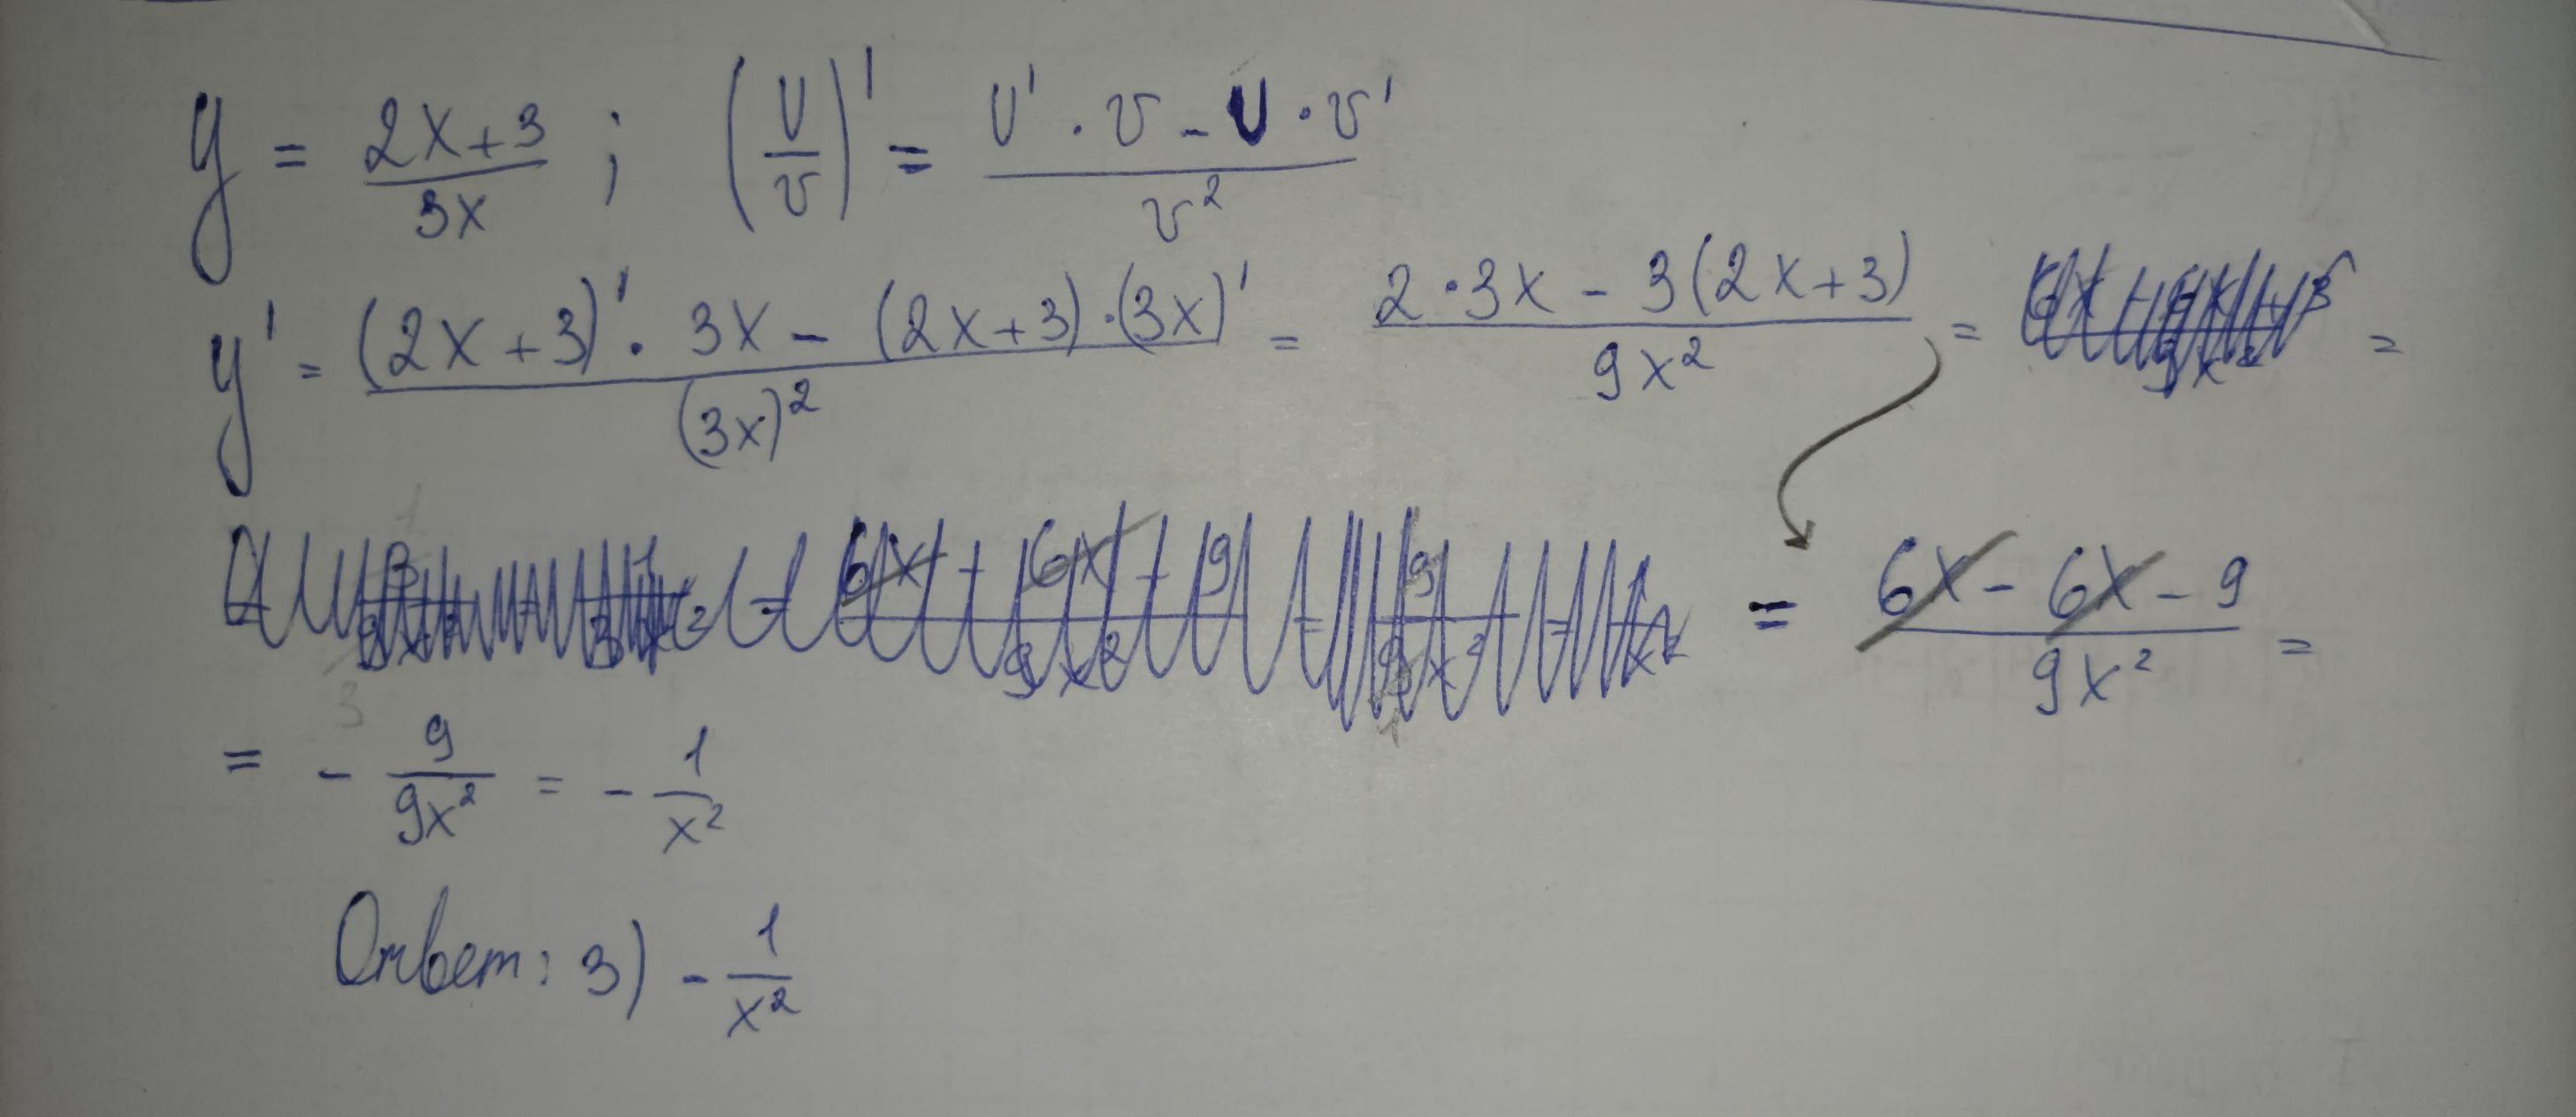 y = (2x+3)/(3x) ; (U/v)' = (U' · v - U · v')/v²
y' = ((2x+3)' · 3x - (2x+3) · (3x)')/(3x)² = (2·3x - 3(2x+3))/(9x²) = =
= (6x - 6x - 9)/(9x²) =
= - 9/(9x²) = - 1/x²
Ответ: 3) - 1/x²